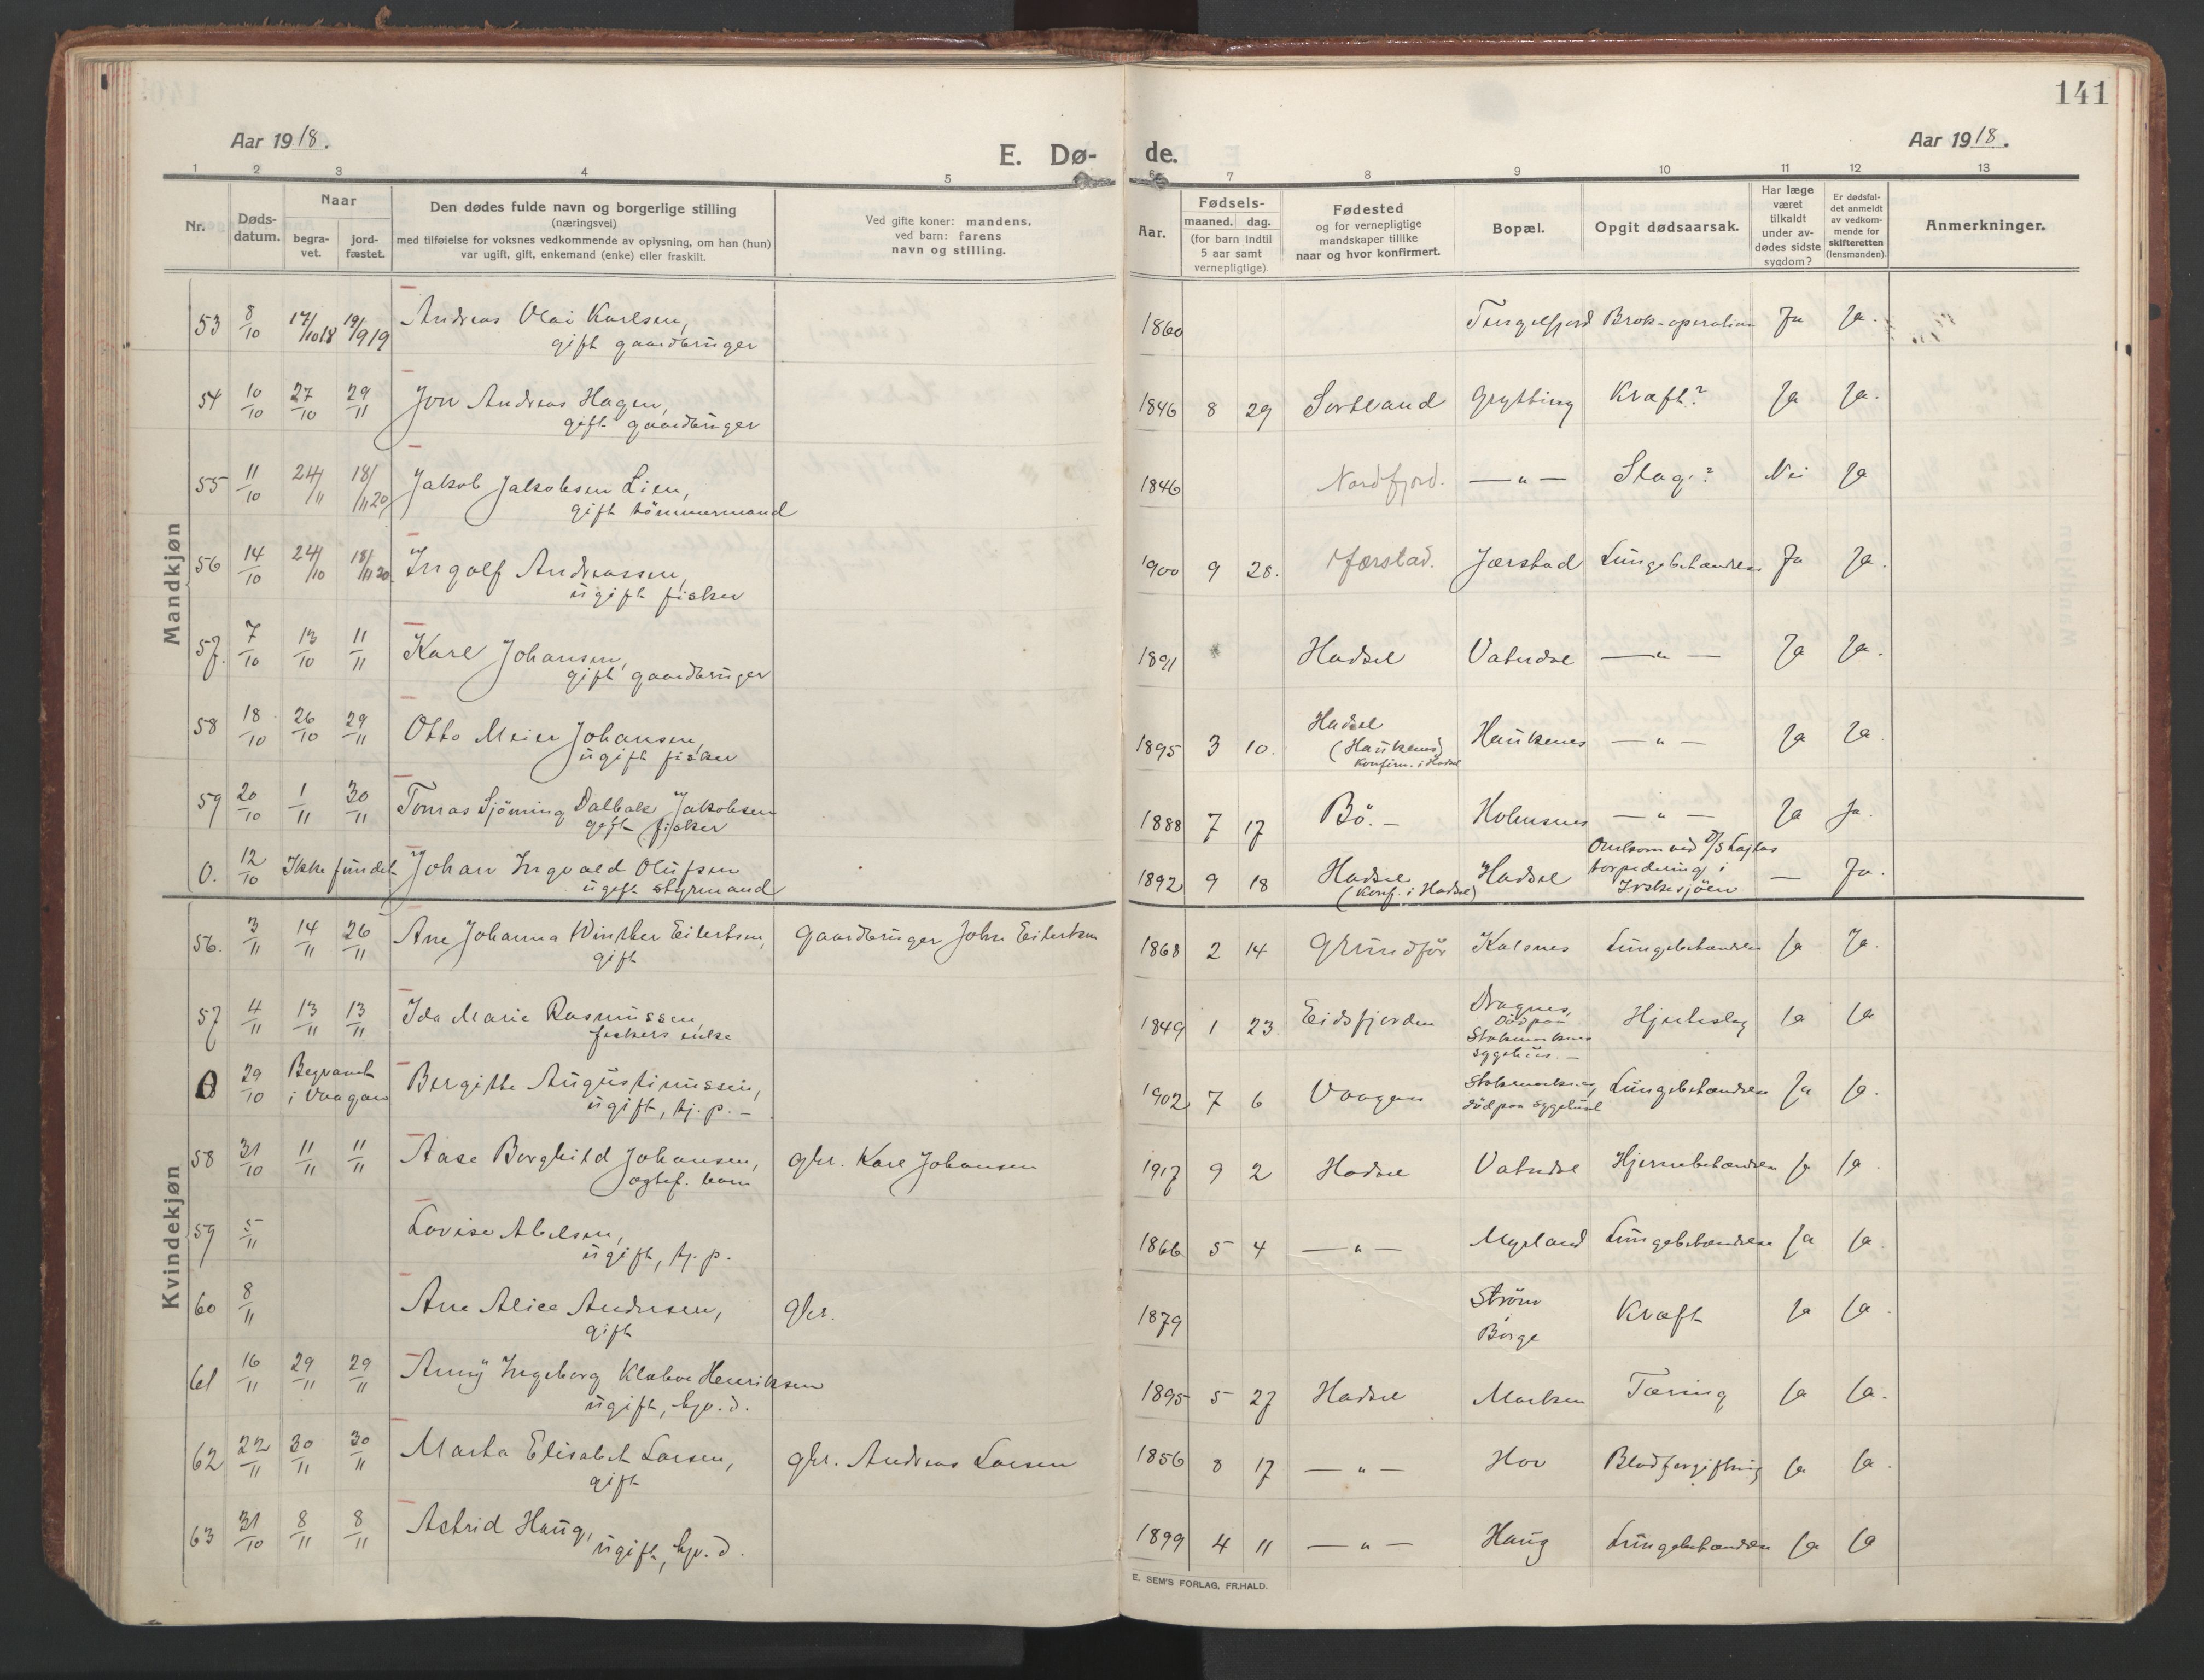 141
Aar 1918.
E. Dø-
de.
Aar 1918.
1 2 3 4 5 6 7 8 9 10 11 12 13
Nr.
Døds-
datum.
Naar
begra-
vet.
jord-
fæstet.
Den dødes fulde navn og borgerlige stilling
(næringsvei)
med tilføielse for voksnes vedkommende av oplysning, om han (hun)
var ugift, gift, enkemand (enke) eller fraskilt.
Ved gifte koner: mandens,
ved barn: farens
navn og stilling.
Aar.
Fødsels-
maaned. dag.
(for barn indtil
5 aar samt
vernepligtige)
Fødested
og for vernepligtige
mandskaper tillike
naar og hvor konfirmert.
Bopæl.
Opgit dødsaarsak.
Har læge
været
tilkaldt
under av-
dødes sidste
sygdom?
Er dødsfal-
det anmeldt
av vedkom-
mende for
skifteretten
(lensmanden).
Anmerkninger.
Mandkjøn
53 8/10 17/10 18 19/9 19 Andreas Olai Karlsen, 1860 Tengelfjord Brok-operation Ja Ja.
gift gaardbruger
54 10/10 27/10 29/11 Jon Andreas Hagen, 1846 8 29 Sortland Grytting Kræft? Ja Ja.
gift gaardbruger
55 11/10 24/11 18/11 20 Jakob Jakobsen Lien, 1846 Nordfjord. — " — Slag? Nei Ja
gift tömmermand
56 14/10 24/10 18/11 20. Ingolf Andreassen, 1900 9 28. Jærstad. Jærstad Lungebetændelse Ja Ja.
ugift fisker
57. 7/10 13/10 11/11 Karl Johansen, 1891 Hadsel Vatndal — " — Ja Ja.
gift gaardbruger
58 18/10 26/10 29/11 Otto Meier Johansen, 1895 3 10. Hadsel Haukenes — " — Ja Ja.
ugift fisker (Haukenes)
Konfirm. i Hadsel
59 20/10 1/11 30/11 Tomas Sjöming Dalbak Jakobsen 1888 7 17 Bö. - Holmsnes — " — Ja Ja.
gift fisker
0. 12/10 Ikke fundet Johan Ingvald Olufsen 1892 9 18 Hadsel Hadsel Omkom ved D/S Lajtas — Ja.
ugift styrmand (Konf. i Hadsel) torpedering i
Irskesjöen
Kvindekjøn
56. 3/11 14/11 26/11 Ane Johanna Winther Eilertsen, Gaardbruger John Eilertsen 1868 2 14 Grundför Kalsnes Lungebetændelse Ja Ja.
gift
57 4/11 13/11 13/11 Ida Marie Rasmussen, 1849 1 23. Eidsfjorden Dragnes, Hjerteslag Ja Ja
fiskers enke Död paa
Stokmarknes
sygehus. —
0 29/10 Begravet Bergitte Augustinussen, 1902 7 6 Vaagan Stokmarknes, Lungebetændelse Ja Ja.
i Vaagan ugift, tj. p. - död paa sygehuset
58 31/10 11/11 11/11 Aase Borghild Johansen, gbr. Karl Johansen 1917 9 2 Hadsel Vatndal Hjernebetændelse Ja Ja.
ægtef. barn
59 5/11 Lovise Abelsen, 1866 5 4 — " — Myrland Lungebetændelse Ja Ja.
ugift, tj. p.
60 8/11 Ane Alice Andersen, gbr. 1879 Ström Kræft Ja Ja.
gift Börge
61 16/11 29/11 29/11 Anny Ingeborg Klaboe Henriksen 1895 5 27 Hadsel Marken Tæring Ja Ja.
ugift, hjv. d.
62 22/11 30/11 30/11 Marta Elisabet Larsen, gbr. Andreas Larsen 1856 8 17 — " — Hov Blodforgiftning Ja Ja.
gift
63 31/10 8/11 8/11 Astrid Haug, 1899 4 11 — " — Haug Lungebetændelse Ja Ja
ugift, hjv. d.
E. SEM'S FORLAG, FR.HALD.